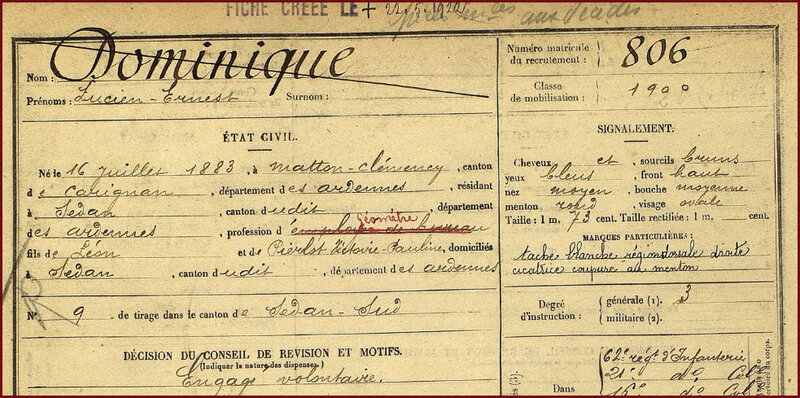 FICHE CRÉÉE LE + 22.5.1920
aux décédés
Nom : Dominique
Prénoms : Lucien-Ernest Surnom :
Numéro matricule du recrutement : 806
Classe de mobilisation : 1900
ÉTAT CIVIL.
Né le 16 juillet 1883, à Matton-Clémency, canton
de Carignan, département des Ardennes, résidant
à Sedan, canton dudit, département
des Ardennes, profession d'employé de bureau géomètre
fils de Léon et de Pierlot Victoire-Pauline, domiciliés
à Sedan, canton dudit, département des Ardennes
N° 9 de tirage dans le canton de Sedan-Sud
DÉCISION DU CONSEIL DE REVISION ET MOTIFS.
(Indiquer la nature des dispenses.)
Engagé volontaire.
SIGNALEMENT.
Cheveux et sourcils bruns
yeux bleus, front haut
nez moyen, bouche moyenne
menton rond, visage ovale
Taille : 1 m. 73 cent. Taille rectifiée : 1 m. cent.
MARQUES PARTICULIÈRES :
tache blanche région dorsale droite
cicatrice coupure au menton
Degré d'instruction : générale (1). 3
militaire (2).
62e régt d'Infanterie Col
21e do Col
15e do
Dans